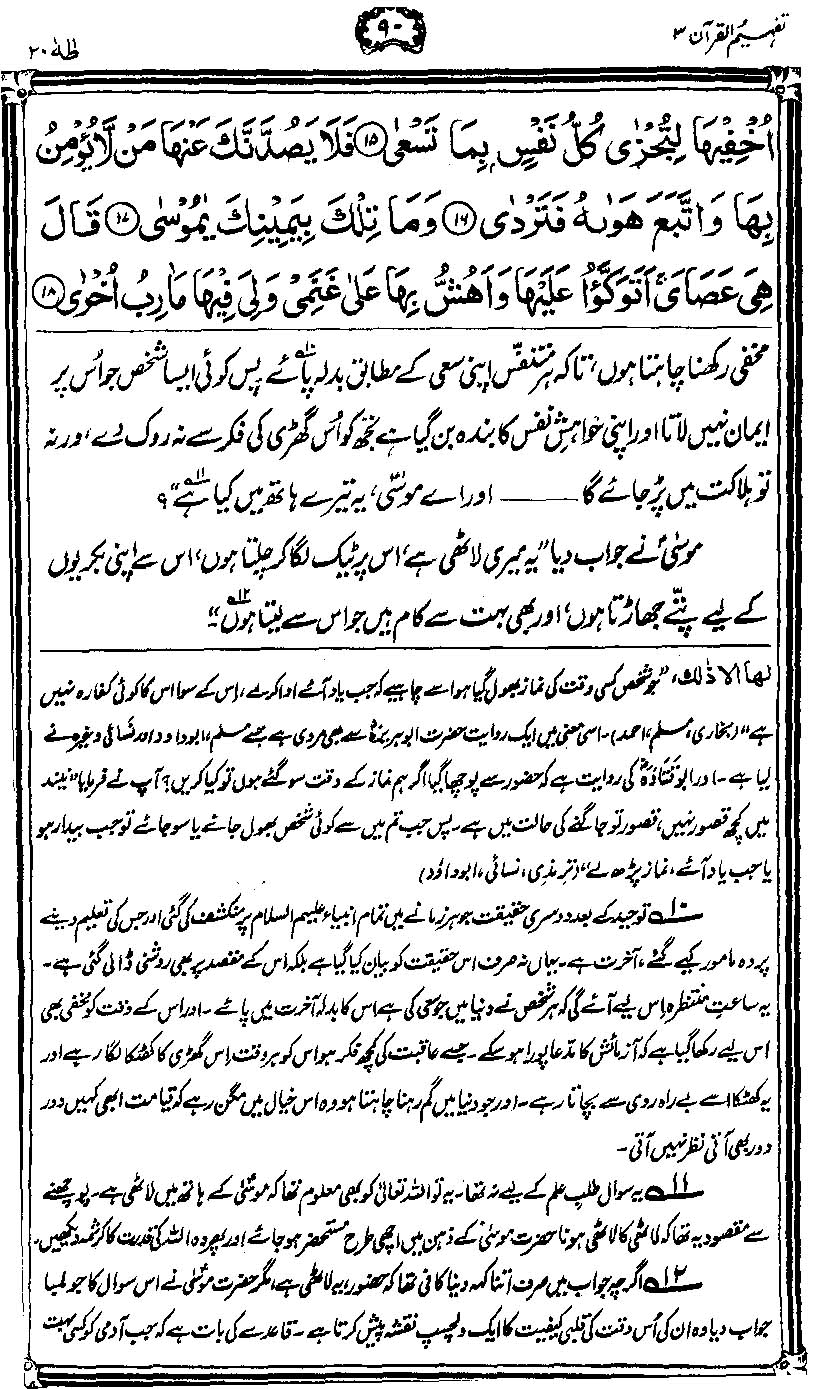 تفہیم القرآن ۳
۹۰
طٰهٰ ۲۰
اُخْفِيْهَا لِتُجْزٰى كُلُّ نَفْسٍۭ بِمَا تَسْعٰى ۝۱۵ فَلَا يَصُدَّنَّكَ عَنْهَا مَنْ لَّا يُؤْمِنُ
بِهَا وَاتَّبَعَ هَوٰىهُ فَتَرْدٰى ۝۱۶ وَمَا تِلْكَ بِيَمِيْنِكَ يٰمُوْسٰى ۝۱۷ قَالَ
هِيَ عَصَايَ ۚ اَتَوَكَّؤُا عَلَيْهَا وَاَهُشُّ بِهَا عَلٰى غَنَمِيْ وَلِيَ فِيْهَا مَاٰرِبُ اُخْرٰى ۝۱۸
مخفی رکھنا چاہتا ہوں، تاکہ ہر متنفّس اپنی سعی کے مطابق بدلہ پائے۱۰۔ پس کوئی ایسا شخص جو اُس پر
ایمان نہیں لاتا اور اپنی خواہشِ نفس کا بندہ بن گیا ہے تجھ کو اُس گھڑی کی فکر سے نہ روک دے، ورنہ
تو ہلاکت میں پڑ جائے گا ——— اور اے موسیٰ، یہ تیرے ہاتھ میں کیا ہے۱۱“؟
موسیٰؑ نے جواب دیا ”یہ میری لاٹھی ہے، اس پر ٹیک لگا کر چلتا ہوں، اس سے اپنی بکریوں
کے لیے پتّے جھاڑتا ہوں، اور بھی بہت سے کام ہیں جو اس سے لیتا ہوں۱۲۔“
لھا الا ذٰلک، ”جو شخص کسی وقت کی نماز بھول گیا ہو اسے چاہیے کہ جب یاد آئے ادا کر لے، اس کے سوا اس کا کوئی کفارہ نہیں
ہے“ (بخاری، مسلم، احمد)۔ اسی معنی میں ایک روایت حضرت ابوہریرہؓ سے بھی مروی ہے جسے مسلم، ابوداود اور نسائی وغیرہ نے
لیا ہے۔ اور ابوقَتَادَہؓ کی روایت ہے کہ حضور سے پوچھا گیا اگر ہم نماز کے وقت سو گئے ہوں تو کیا کریں؟ آپ نے فرمایا ”نیند
میں کچھ قصور نہیں، قصور تو جاگنے کی حالت میں ہے۔ پس جب تم میں سے کوئی شخص بھول جائے یا سو جائے تو جب بیدار ہو
یا جب یاد آئے، نماز پڑھ لے“ (ترمذی، نسائی، ابوداؤد)
۱۰ توحید کے بعد دوسری حقیقت جو ہر زمانے میں تمام انبیاء علیہم السلام پر منکشف کی گئی اور جس کی تعلیم دینے
پر وہ مامور کیے گئے، آخرت ہے۔ یہاں نہ صرف اس حقیقت کو بیان کیا گیا ہے بلکہ اس کے مقصد پر بھی روشنی ڈالی گئی ہے۔
یہ ساعتِ منتظَرہ اِس لیے آئے گی کہ ہر شخص نے دنیا میں جو سعی کی ہے اس کا بدلہ آخرت میں پائے۔ اور اس کے وقت کو مخفی بھی
اس لیے رکھا گیا ہے کہ آزمائش کا مدّعا پورا ہو سکے۔ جسے عاقبت کی کچھ فکر ہو اس کو ہر وقت اِس گھڑی کا کھٹکا لگا رہے اور
یہ کھٹکا اسے بے راہ روی سے بچاتا رہے۔ اور جو دنیا میں گم رہنا چاہتا ہو وہ اس خیال میں مگن رہے کہ قیامت ابھی کہیں دور
دور بھی آتی نظر نہیں آتی۔
۱۱ یہ سوال طلبِ علم کے لیے نہ تھا۔ یہ تو اللہ تعالیٰ کو بھی معلوم تھا کہ موسیٰؑ کے ہاتھ میں لاٹھی ہے۔ پوچھنے
سے مقصود یہ تھا کہ لاٹھی کا لاٹھی ہونا حضرت موسیٰؑ کے ذہن میں اچھی طرح مستحضر ہو جائے اور پھر وہ اللہ کی قدرت کا کرشمہ دیکھیں۔
۱۲ اگرچہ جواب میں صرف اتنا کہہ دینا کافی تھا کہ حضور، یہ لاٹھی ہے، مگر حضرت موسیٰؑ نے اس سوال کا جو لمبا
جواب دیا وہ ان کی اُس وقت کی قلبی کیفیت کا ایک دلچسپ نقشہ پیش کرتا ہے۔ قاعدے کی بات ہے کہ جب آدمی کو کسی بہت